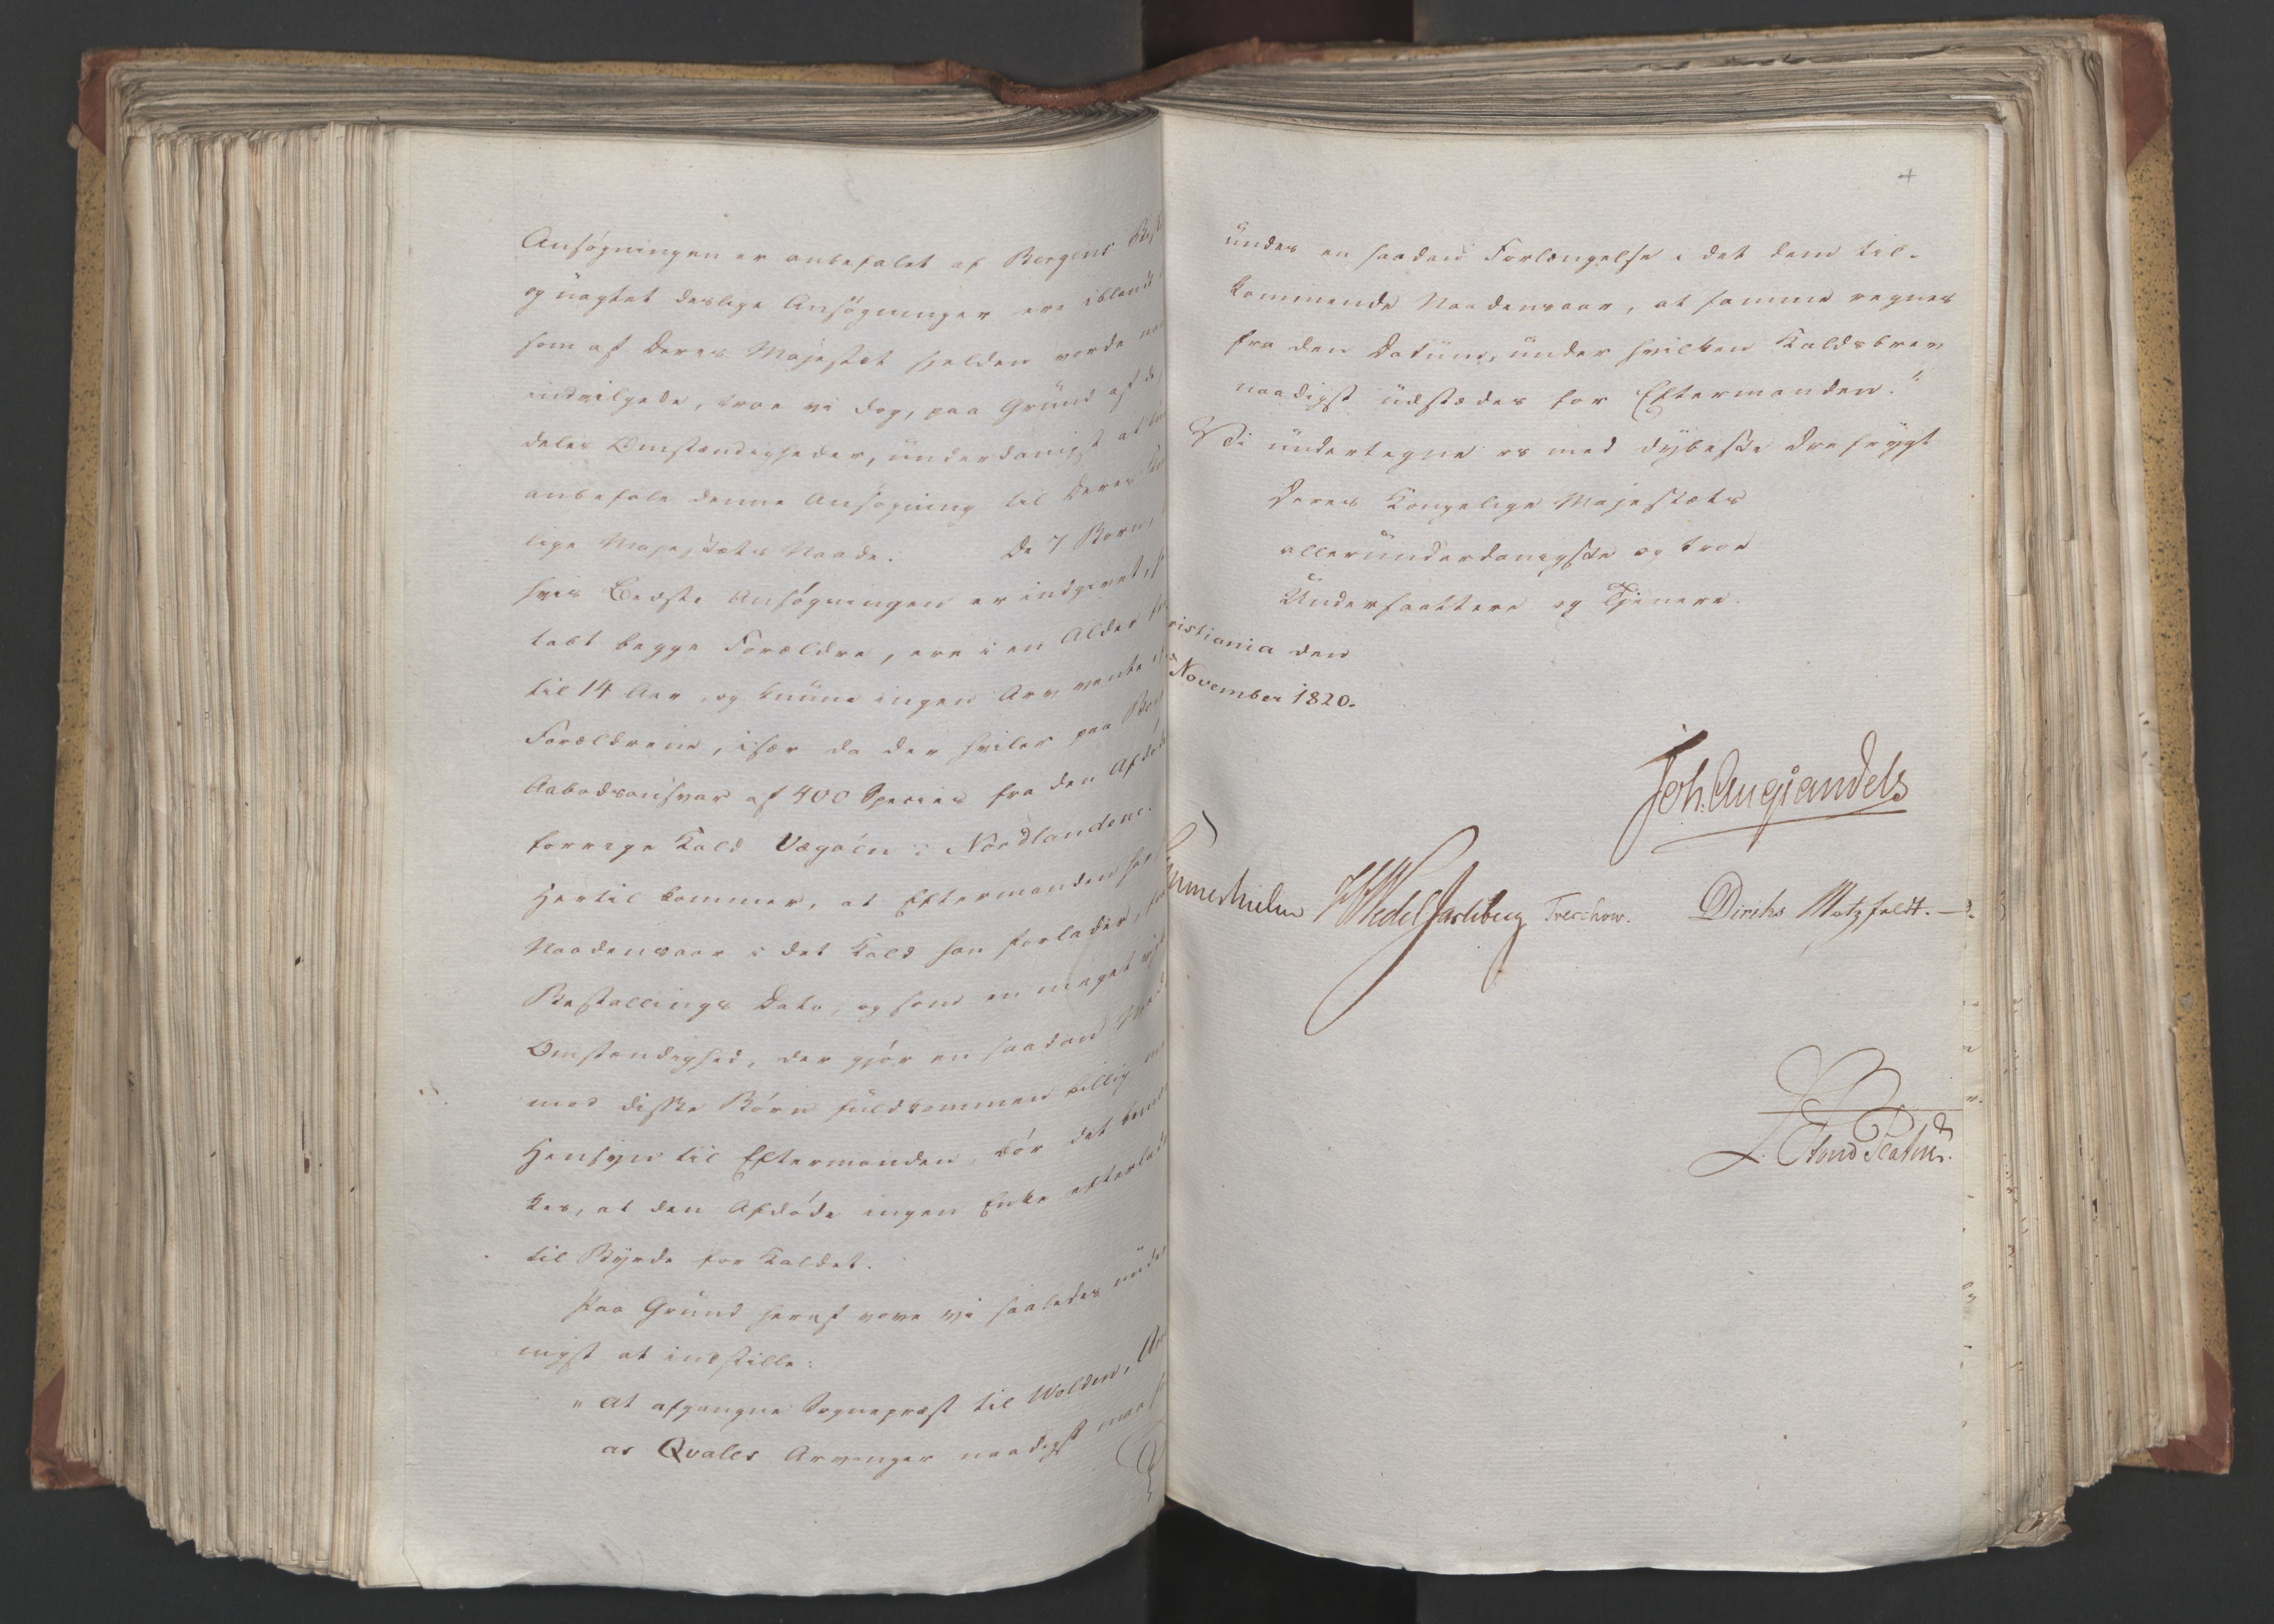 Ansøgningen er anbefalet af Bergens
og uagtet deslige Ansøgninger ere iblandt
som af Deres Majestæt sjelden vorde
indvilgede, troe vi dog, paa Grund af de
deles Omstændigheder, underdanigst at
anbefale denne Ansøgning til Deres
lige Majestæts Naade. De 7 Børn,
hvis Bedste Ansøgningen er indgivet,
tabt begge Forældre, ere i en Alder
til 14 Aar, og kunne ingen Arv vente
Forældrene, især da der hviler paa
Aabodsansvar af 400 Species fra den
forrige Kald Vægøen i Nordlandene.
Hertil kommer, at Eftermanden har
Naadensaar i det Kald han forlader,
Bestallings Dato, og som en meget
Omstændighed, der gjør en saadan
mod disse Børn fuldkommen billig
Hensyn til Eftermanden, bør det
kes, at den Afdøde ingen Enke
til Byrde for Kaldet.
Paa Grund heraf vove vi saaledes
nigst at indstille:
"At afgangne Sognepræst til Wolden,
as Qvales Arvinger naadigst maa
undes en saadan Forlængelse i det dem til-
kommende Naadensaar, at samme regnes
fra den Datum, under hvilken Kaldsbrev
naadigst udstædes for Eftermanden."
Vi undertegne os med dybeste Ærefrygt
Deres Kongelige Majestæts
allerunderdanigste og troe
Undersaattere og Tjenere.
ristiania den
November 1820.
Joh. Aug Sandels
mmerhielm Wedel Jarlsberg Treschow. Diriks Motzfeldt.